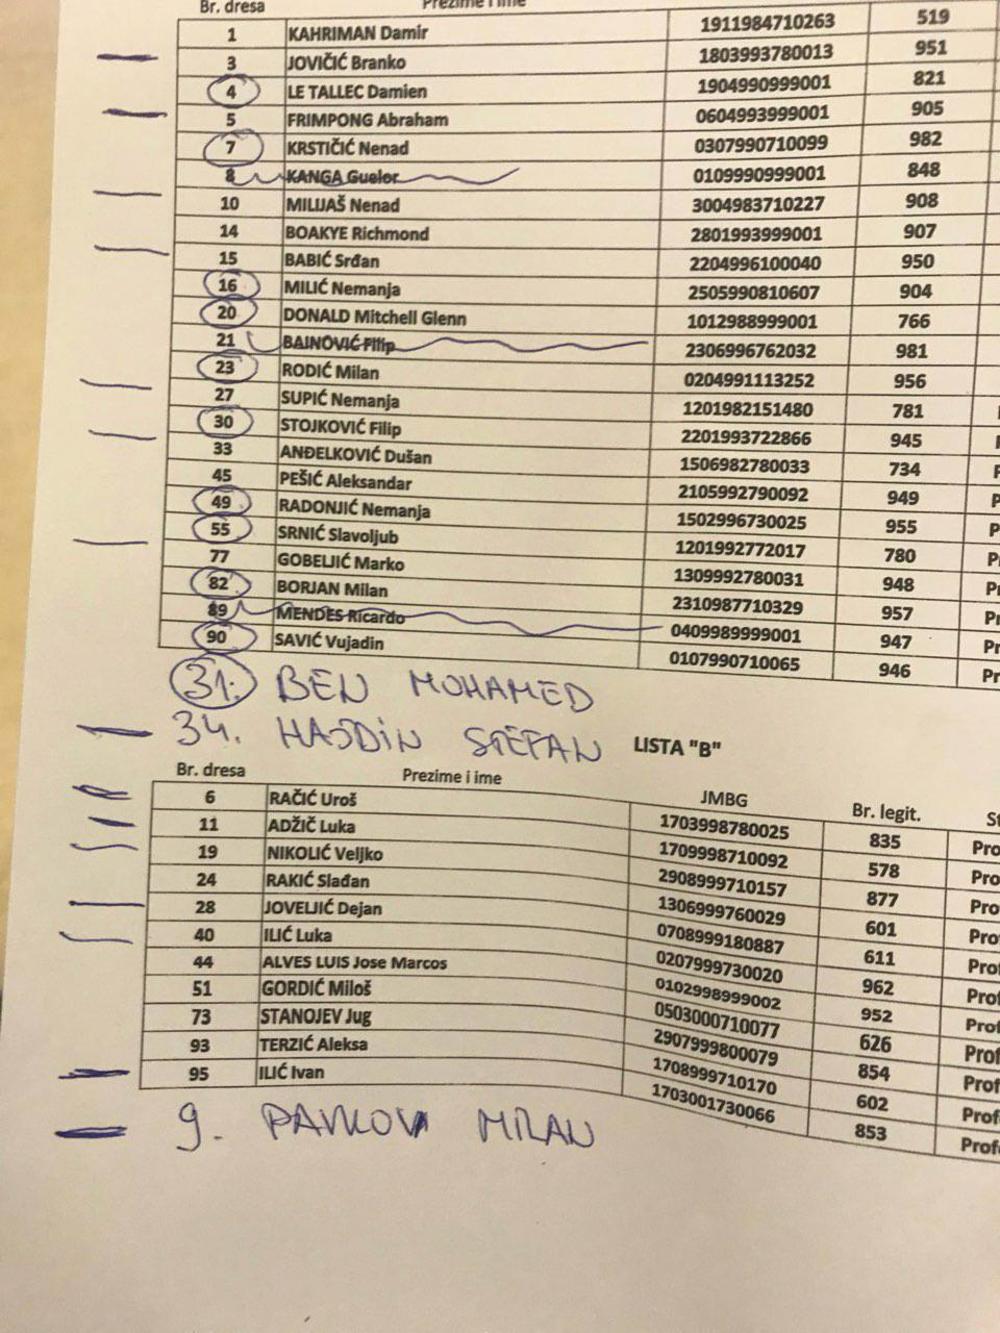 Br. dresa Prezime i ime
1 KAHRIMAN Damir 1911984710263 519
3 JOVIČIĆ Branko 1803993780013 951
4 LE TALLEC Damien 1904990999001 821
5 FRIMPONG Abraham 0604993999001 905
7 KRSTIČIĆ Nenad 0307990710099 982
8 KANGA Guelor 0109990999001 848
10 MILIJAŠ Nenad 3004983710227 908
14 BOAKYE Richmond 2801993999001 907
15 BABIĆ Srđan 2204996100040 950
16 MILIĆ Nemanja 2505990810607 904
20 DONALD Mitchell Glenn 1012988999001 766
21 BAINOVIĆ Filip 2306996762032 981
23 RODIĆ Milan 0204991113252 956
27 SUPIĆ Nemanja 1201982151480 781
30 STOJKOVIĆ Filip 2201993722866 945
33 ANĐELKOVIĆ Dušan 1506982780033 734
45 PEŠIĆ Aleksandar 2105992790092 949 P
49 RADONJIĆ Nemanja 1502996730025 955 P
55 SRNIĆ Slavoljub 1201992772017 780 Pr
77 GOBELJIĆ Marko 1309992780031 948 Pr
82 BORJAN Milan 2310987710329 957 Pr
89 MENDES Ricardo 0409989999001 947 Pr
90 SAVIĆ Vujadin 0107990710065 946 Pr
31. BEN MOHAMED
34. HAJDIN STEFAN
LISTA "B"
Br. dresa Prezime i ime JMBG Br. legit. St
6 RAČIĆ Uroš 1703998780025 835 Pro
11 ADŽIČ Luka 1709998710092 578 Pro
19 NIKOLIĆ Veljko 2908999710157 877 Pro
24 RAKIĆ Slađan 1306999760029 601 Pro
28 JOVELJIĆ Dejan 0708999180887 611 Prof
40 ILIĆ Luka 0207999730020 962 Prof
44 ALVES LUIS Jose Marcos 0102998999002 952 Prof
51 GORDIĆ Miloš 0503000710077 626 Prof
73 STANOJEV Jug 2907999800079 854 Prof
93 TERZIĆ Aleksa 1708999710170 602 Prof
95 ILIĆ Ivan 1703001730066 853 Prof
9. PAVKOV MILAN